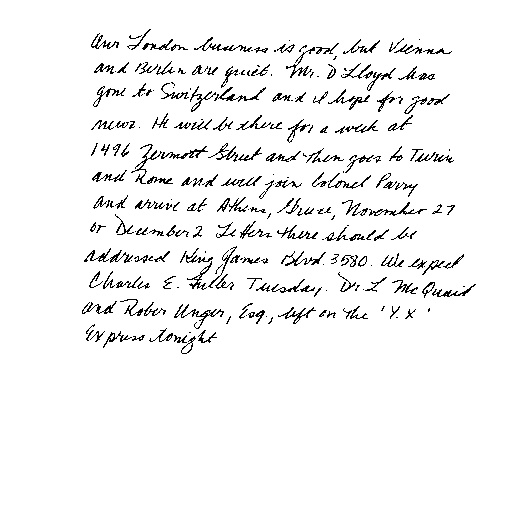 Our London business is good, but Vienna
and Berlin are quiet. Mr. D Lloyd has
gone to Switzerland and I hope for good
news. He will be there for a week at
1496 Zermott Street and then goes to Turin
and Rome and will join Colonel Parry
and arrive at Athens, Greece, November 27
or December 2 Letters there should be
addressed King James Blvd. 3580. We expect
Charles E. Fuller Tuesday. Dr. L McQuaid
and Rober Unger, Esq., left on the 'Y. X '
Express tonight